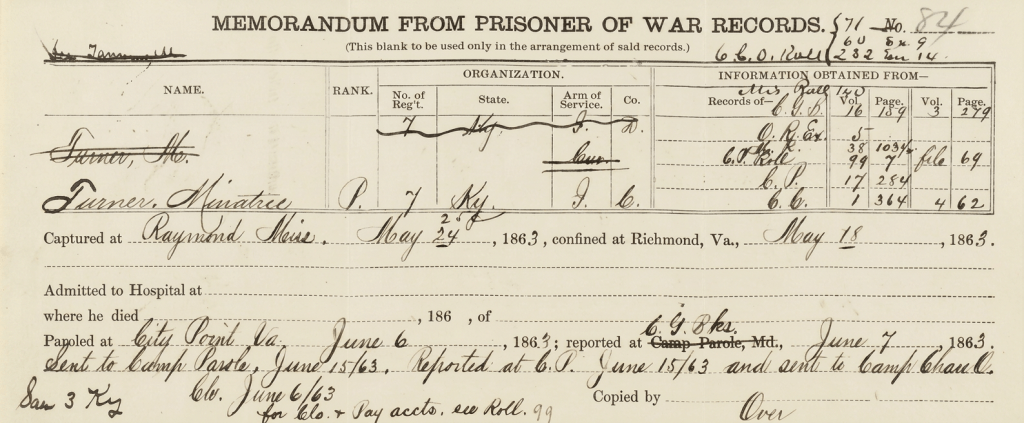 MEMORANDUM FROM PRISONER OF WAR RECORDS. { 71 No. 84
(This blank to be used only in the arrangement of said records.) C.C.O. Roll { 60 Ex 9
232 14
NAME. RANK. ORGANIZATION. INFORMATION OBTAINED FROM—
No. of Reg't. State. Arm of Service. Co. Records of— Vol. Page. Vol. Page.
Mis Roll 140
7 Ky. I. D. C.G.B. 16 189 3 279
O.R. Ex. 5
Turner, M. Cav. 38 1034
C.P. Roll 99 7 file 69
C.P. 17 284
Turner, Minatree P. 7 Ky. I. C. C.C. 1 364 4 62
25
Captured at Raymond Miss. May 24, 1863, confined at Richmond, Va., May 18, 1863.
Admitted to Hospital at
where he died , 186 , of
C. G. Bks.
Paroled at City Point Va. June 6, 1863; reported at Camp Parole, Md., June 7, 1863.
Sent to Camp Parole, June 15/63. Reported at C.P. June 15/63 and sent to Camp Chase O.
Clo. June 6/63 Copied by
3 Ky for Clo. & Pay accts. see Roll. 99 Over